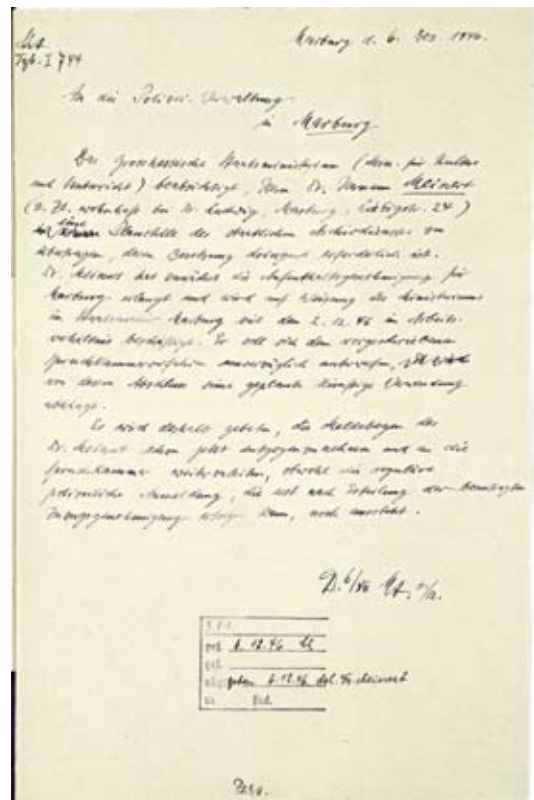 Tgb. I 744
Marburg d. 6. Dez. 1946.
An die Polizei-Verwaltung
in Marburg
Das Grosshessische Staatsministerium (Min. für Kultus
und Unterricht) beabsichtigt, Herrn Dr. Hermann Meinert
(z. Zt. wohnhaft bei Dr. Ludwig, Marburg, Liebigstr. 24)
eine Planstelle des staatlichen Archivdienstes zu
übertragen, deren Besetzung dringend erforderlich ist.
Dr. Meinert hat zunächst die Aufenthaltsgenehmigung für
Marburg erlangt und wird auf Weisung des Ministeriums
in Marburg seit dem 2.12.46 im Arbeits-
verhältnis beschäftigt. Er soll sich dem vorgeschriebenen
Spruchkammerverfahren unverzüglich unterwerfen,
von dessen Abschluss seine geplante künftige Verwendung
abhängt.
Es wird deshalb gebeten, die Meldebogen des
Dr. Meinert schon jetzt entgegenzunehmen und an die
Spruchkammer weiterzuleiten, obwohl die reguläre
polizeiliche Anmeldung, die erst nach Erteilung der beantragten
Zuzugsgenehmigung erfolgen kann, noch aussteht.
D. 6/XII
6.12.46
6.12.46 Dr. Meinert